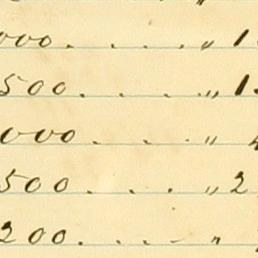 000 . . . . " 1
500 . . . . " 1
000 . . . "
500 . . . . " 2
200 . . . . "